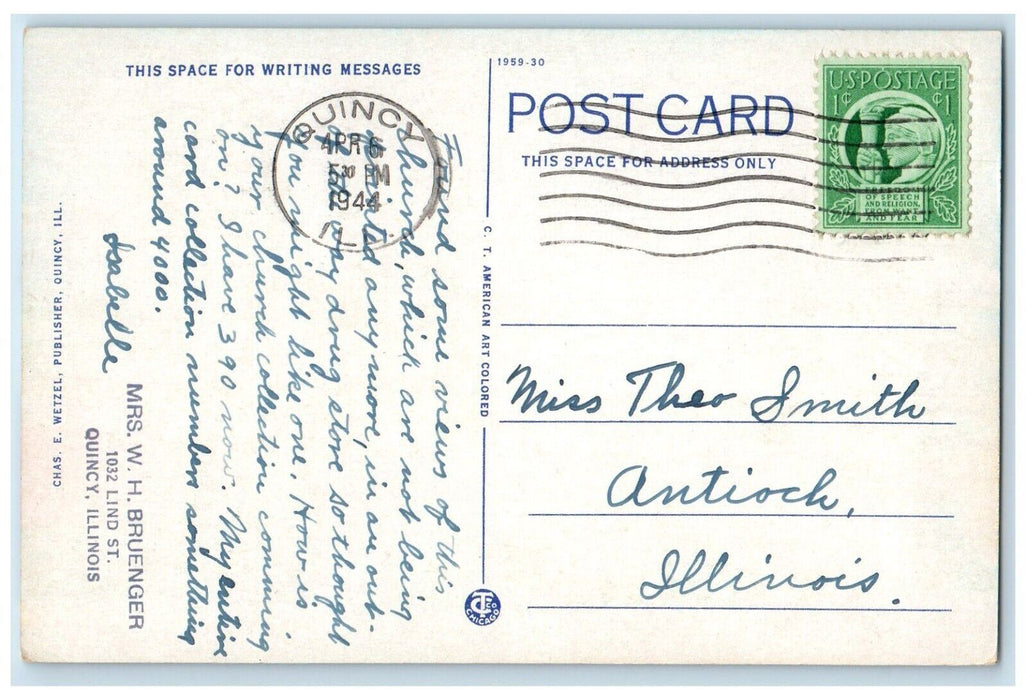 THIS SPACE FOR WRITING MESSAGES
Found some views of this
church, which are not being
printed any more, in an out-
of the way drug store so thought
you might like one. How is
your church collection comming
on? I have 390 now. My entire
card collection numbers something
around 4000.
Isabelle
MRS. W. H. BRUENGER
1032 LIND ST.
QUINCY, ILLINOIS
CHAS. E. WETZEL, PUBLISHER, QUINCY, ILL.
QUINCY
APR 6
5 30 PM
1944
ILL.
C. T. AMERICAN ART COLORED
CHICAGO
1959-30
POST CARD
THIS SPACE FOR ADDRESS ONLY
U.S. POSTAGE
1¢ ¢1
FREEDOM
OF SPEECH
AND RELIGION,
FROM WANT
AND FEAR
Miss Theo Smith
Antioch,
Illinois.